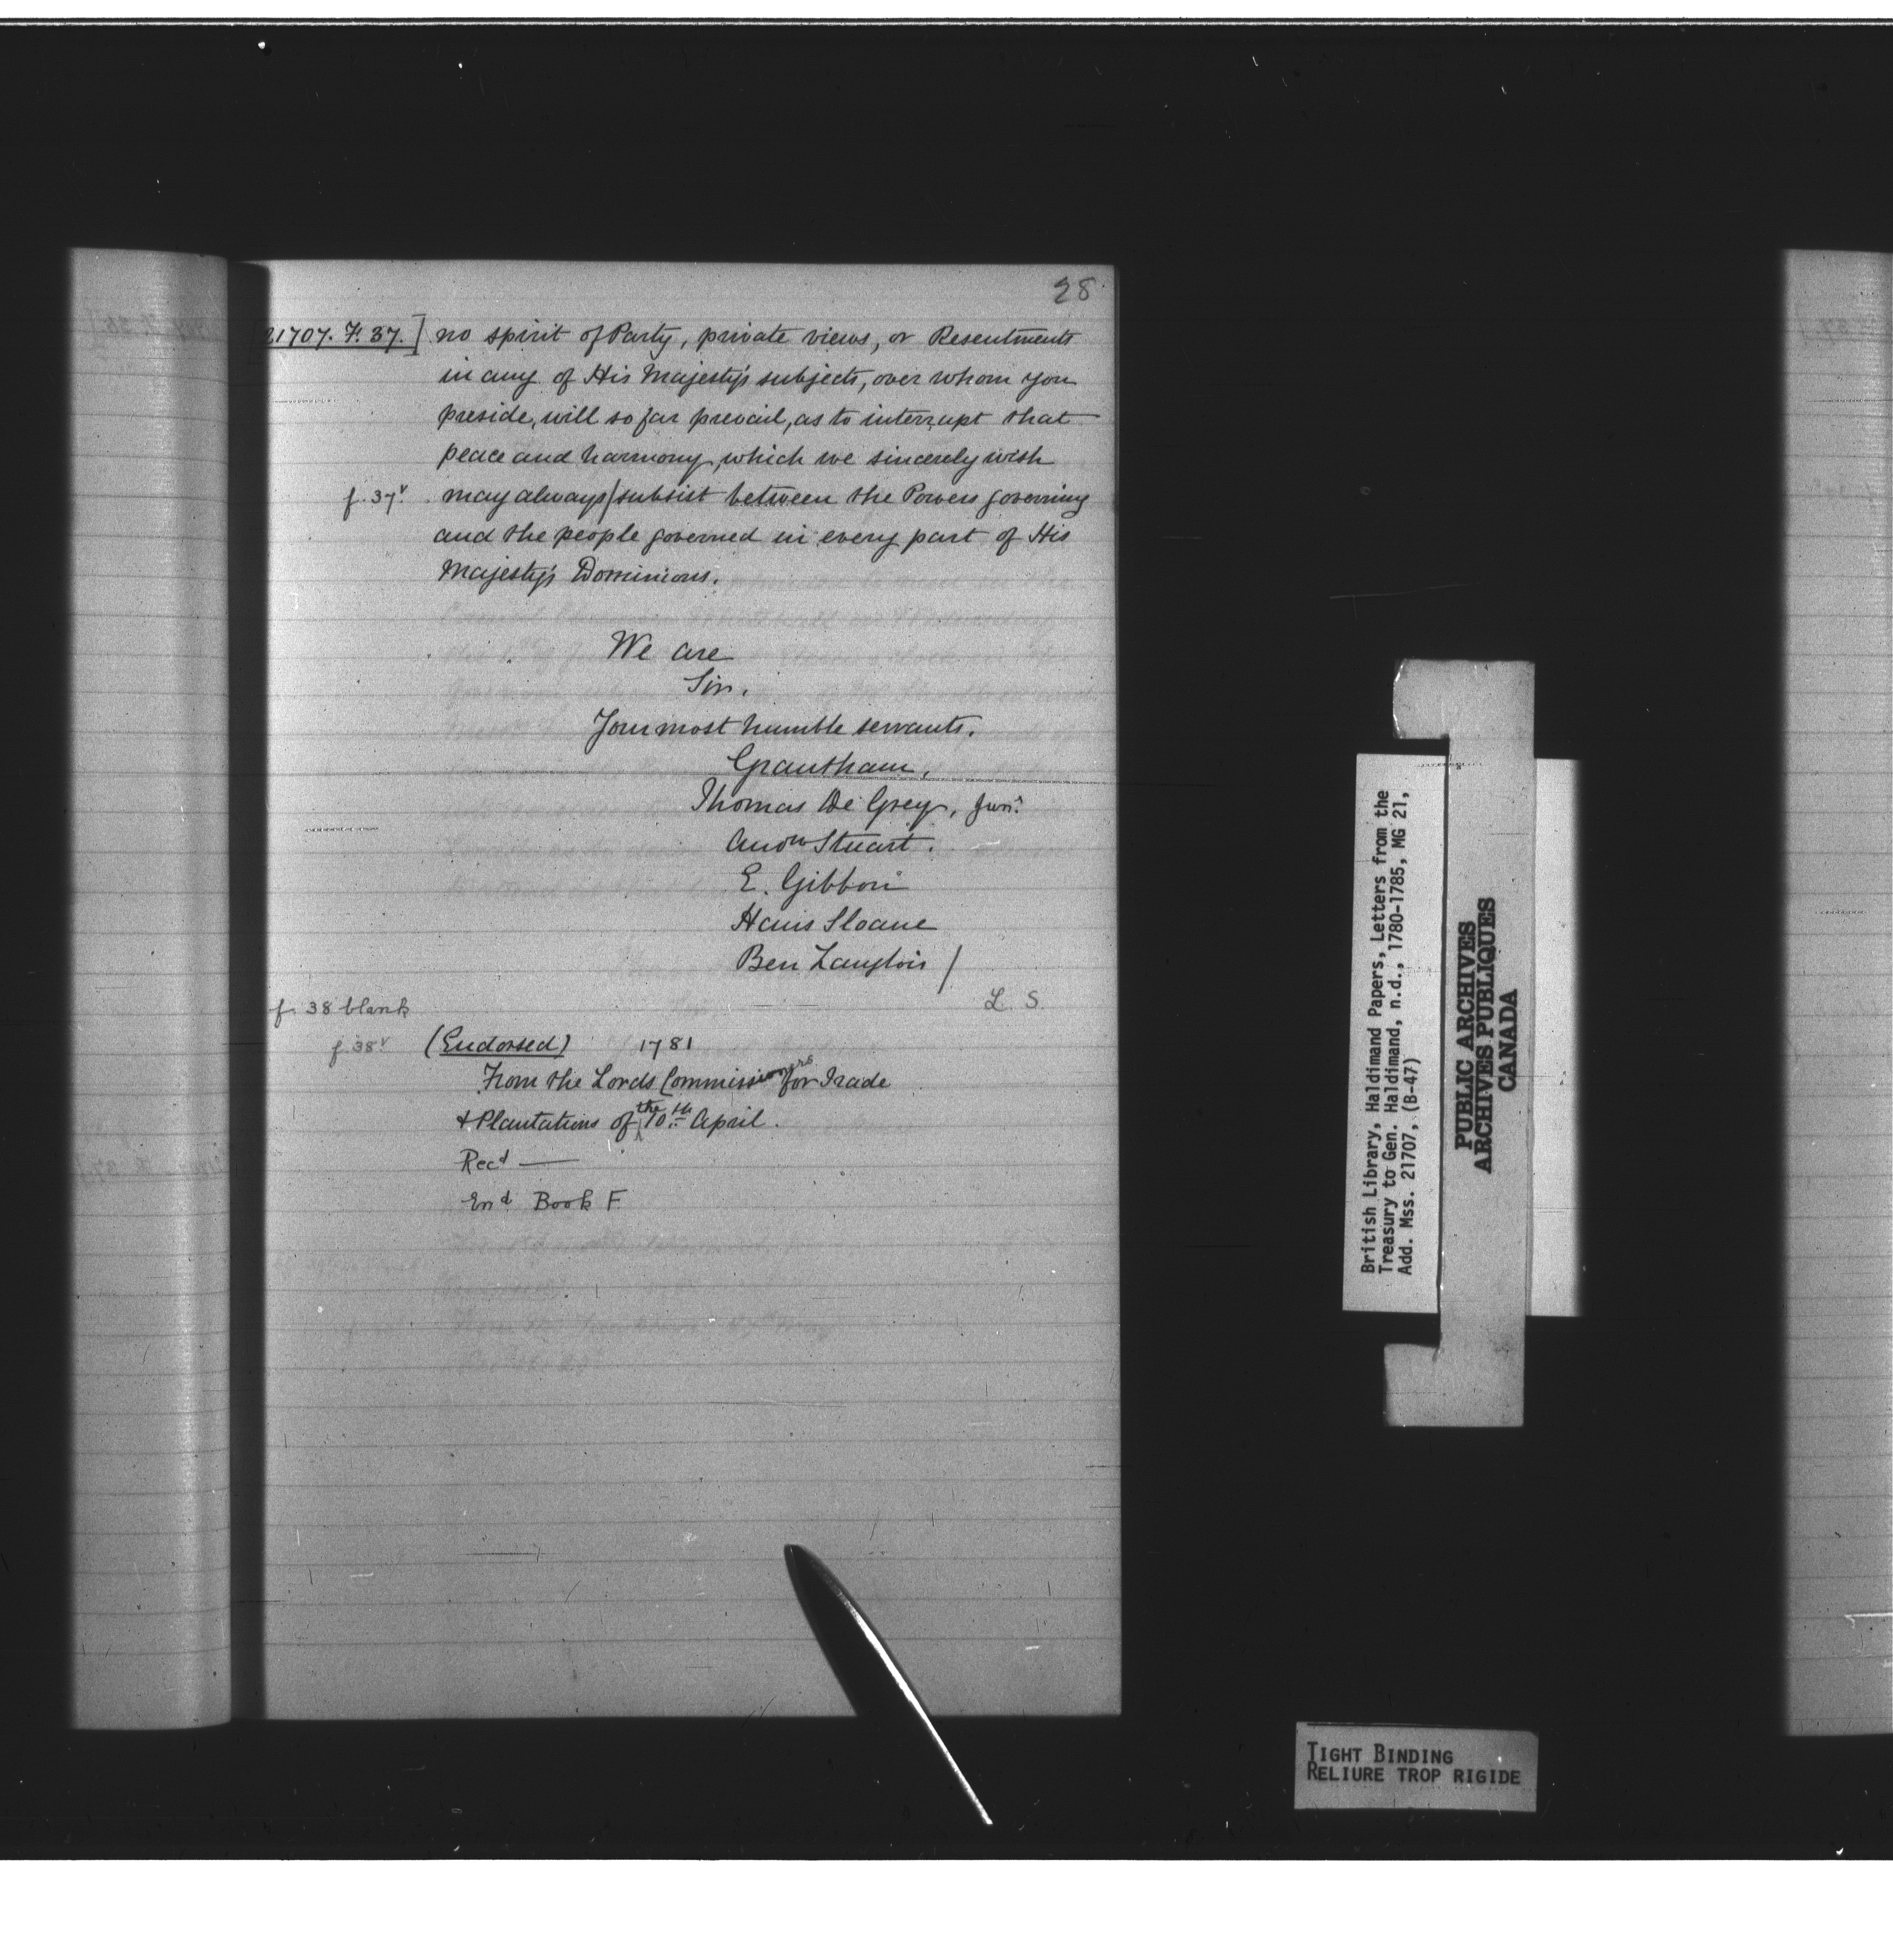 28
21707. F. 37.] no spirit of Party, private views, or Resentments
in any of His Majesty's subjects, over whom you
preside, will so far prevail, as to interrupt that
peace and harmony, which we sincerely wish
f. 37v may always/subsist between the Powers governing
and the people governed in every part of His
Majesty's Dominions.
We are
Sir,
Your most humble servants.
Grantham,
Thomas De Grey, Junr.
Andw Stuart.
E. Gibbon
Hans Sloane
Ben Langlois /
f. 38 blank
L. S.
f. 38v (Endorsed) 1781
From the Lords Commissioners for Trade
& Plantations of the 10th April.
Recd —
Entd Book F
British Library, Haldimand Papers, Letters from the
Treasury to Gen. Haldimand, n.d., 1780-1785, MG 21,
Add. Mss. 21707, (B-47)
PUBLIC ARCHIVES
ARCHIVES PUBLIQUES
CANADA
TIGHT BINDING
RELIURE TROP RIGIDE